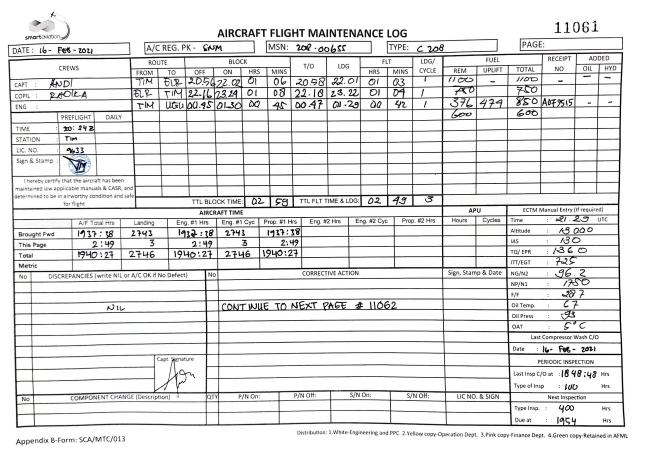 smartaviation
AIRCRAFT FLIGHT MAINTENANCE LOG
11061
DATE : 16- FEB -2021
A/C REG. PK - SNM
MSN: 208-00655
TYPE: C 208
PAGE:
CREWS ROUTE BLOCK T/D LDG FLT LDG/ CYCLE FUEL RECEIPT NO ADDED
FROM TO OFF ON HRS MINS HRS MINS REM UPLIFT TOTAL OIL HYD
CAPT : ANDI TIM ELR 20.56 22.02 01 06 20 58 22.01 01 03 1 1100 - 1100 - -
COPIL : ELR TIM 22.16 23.24 01 08 22.18 23.22 01 04 1 750 750
ENG : TIM UGU 00.45 01.30 00 45 00.47 01.29 00 42 1 376 474 850 - -
600 600
PREFLIGHT DAILY
TIME : 20:24 Z
STATION : TIM
LIC. NO. : 9633
Sign & Stamp :
I hereby certify that the aircraft has been
maintained iaw applicable manuals & CASR, and
determined to be in airworthy condition and safe
for flight
TTL BLOCK TIME: 02 59 TTL FLT TIME & LDG: 02 49 3
AIRCRAFT TIME APU ECTM Manual Entry (If required)
A/F Total Hrs Landing Eng. #1 Hrs Eng. #1 Cyc Prop. #1 Hrs Eng. #2 Hrs Eng. #2 Cyc Prop. #2 Hrs Hours Cycles
Time : 21.29 UTC
Brought Fwd 1937:38 2743 1937:38 2743 1937:38
Altitude : 13 000
This Page 2:49 3 2:49 3 2:49
IAS : 130
Total 1940:27 2746 1940:27 2746 1940:27
TQ/ EPR : 1360
Metric
ITT/EGT : 725
No DISCREPANCIES (write NIL or A/C OK if No Defect) No CORRECTIVE ACTION Sign, Stamp & Date
NG/N2 : 96.2
NP/N1 : 1750
F/F : 287
NIL
CONTINUE TO NEXT PAGE # 11062
Oil Temp. : 67
Oil Press : 93
OAT : 5°C
Last Compressor Wash C/O
Date : 16- FEB - 2021
Capt. Signature
PERIODIC INSPECTION
Last Insp C/O at : 1848:48 Hrs
Type of Insp : 100 Hrs
No COMPONENT CHANGE (Description) QTY P/N On: P/N Off: S/N On: S/N Off: LIC NO. & SIGN
Next Inspection
Type Insp. : 400 Hrs
Due at : 1954 Hrs
Distribution: 1.White-Engineering and PPC 2.Yellow copy-Operation Dept. 3.Pink copy-Finance Dept. 4.Green copy-Retained in AFML
Appendix B-Form: SCA/MTC/013